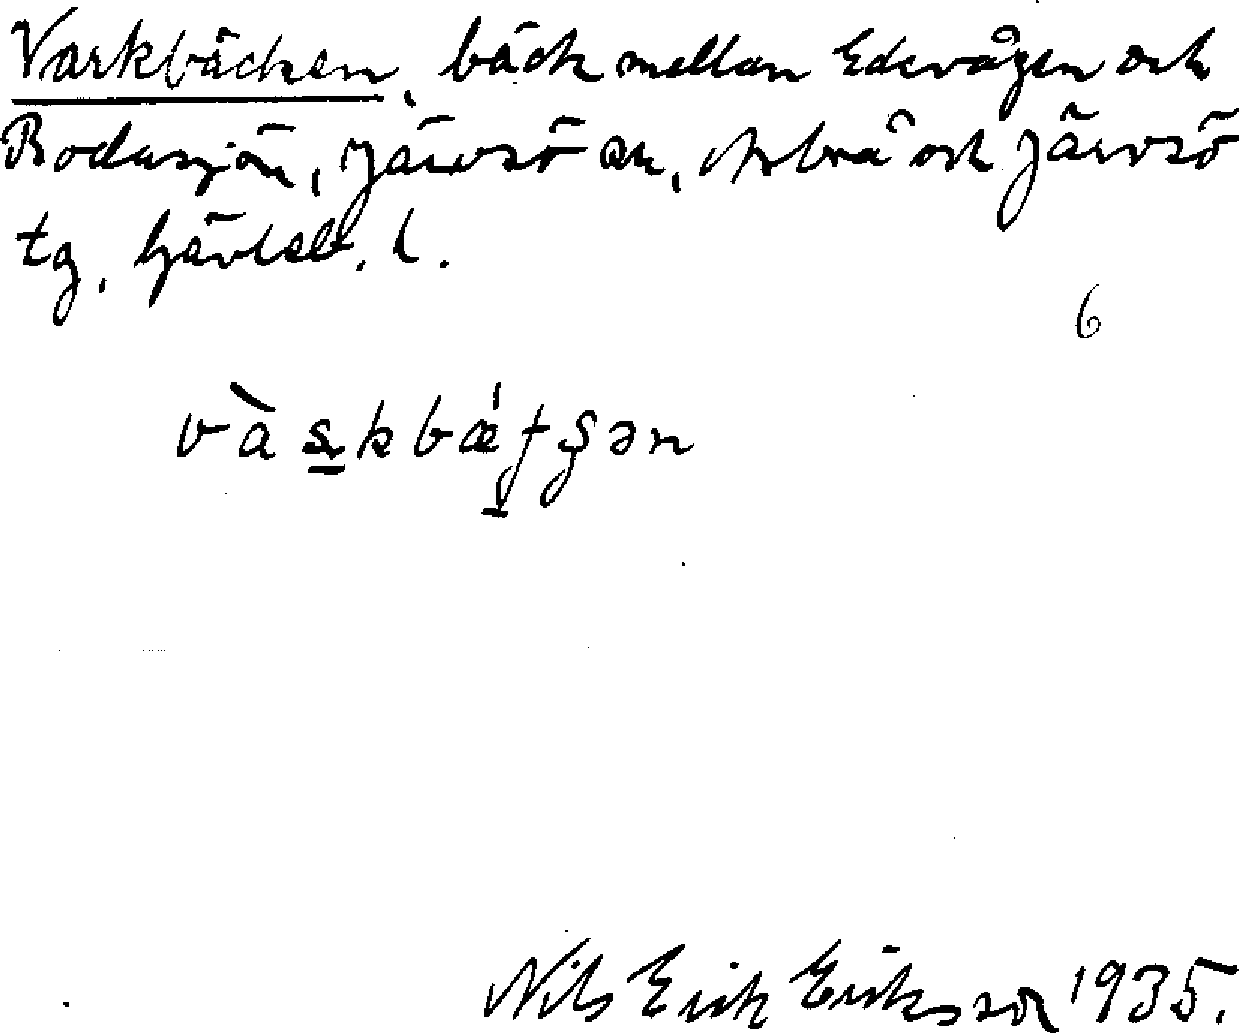 Varkbäcken, bäck mellan Edevågen och
Rodasjön, Järvsö sn, Arbrå och Järvsö
tg, Gävleb. l.
6
vàrkbǽtʂən
Nils Erik Eriksson 1935.